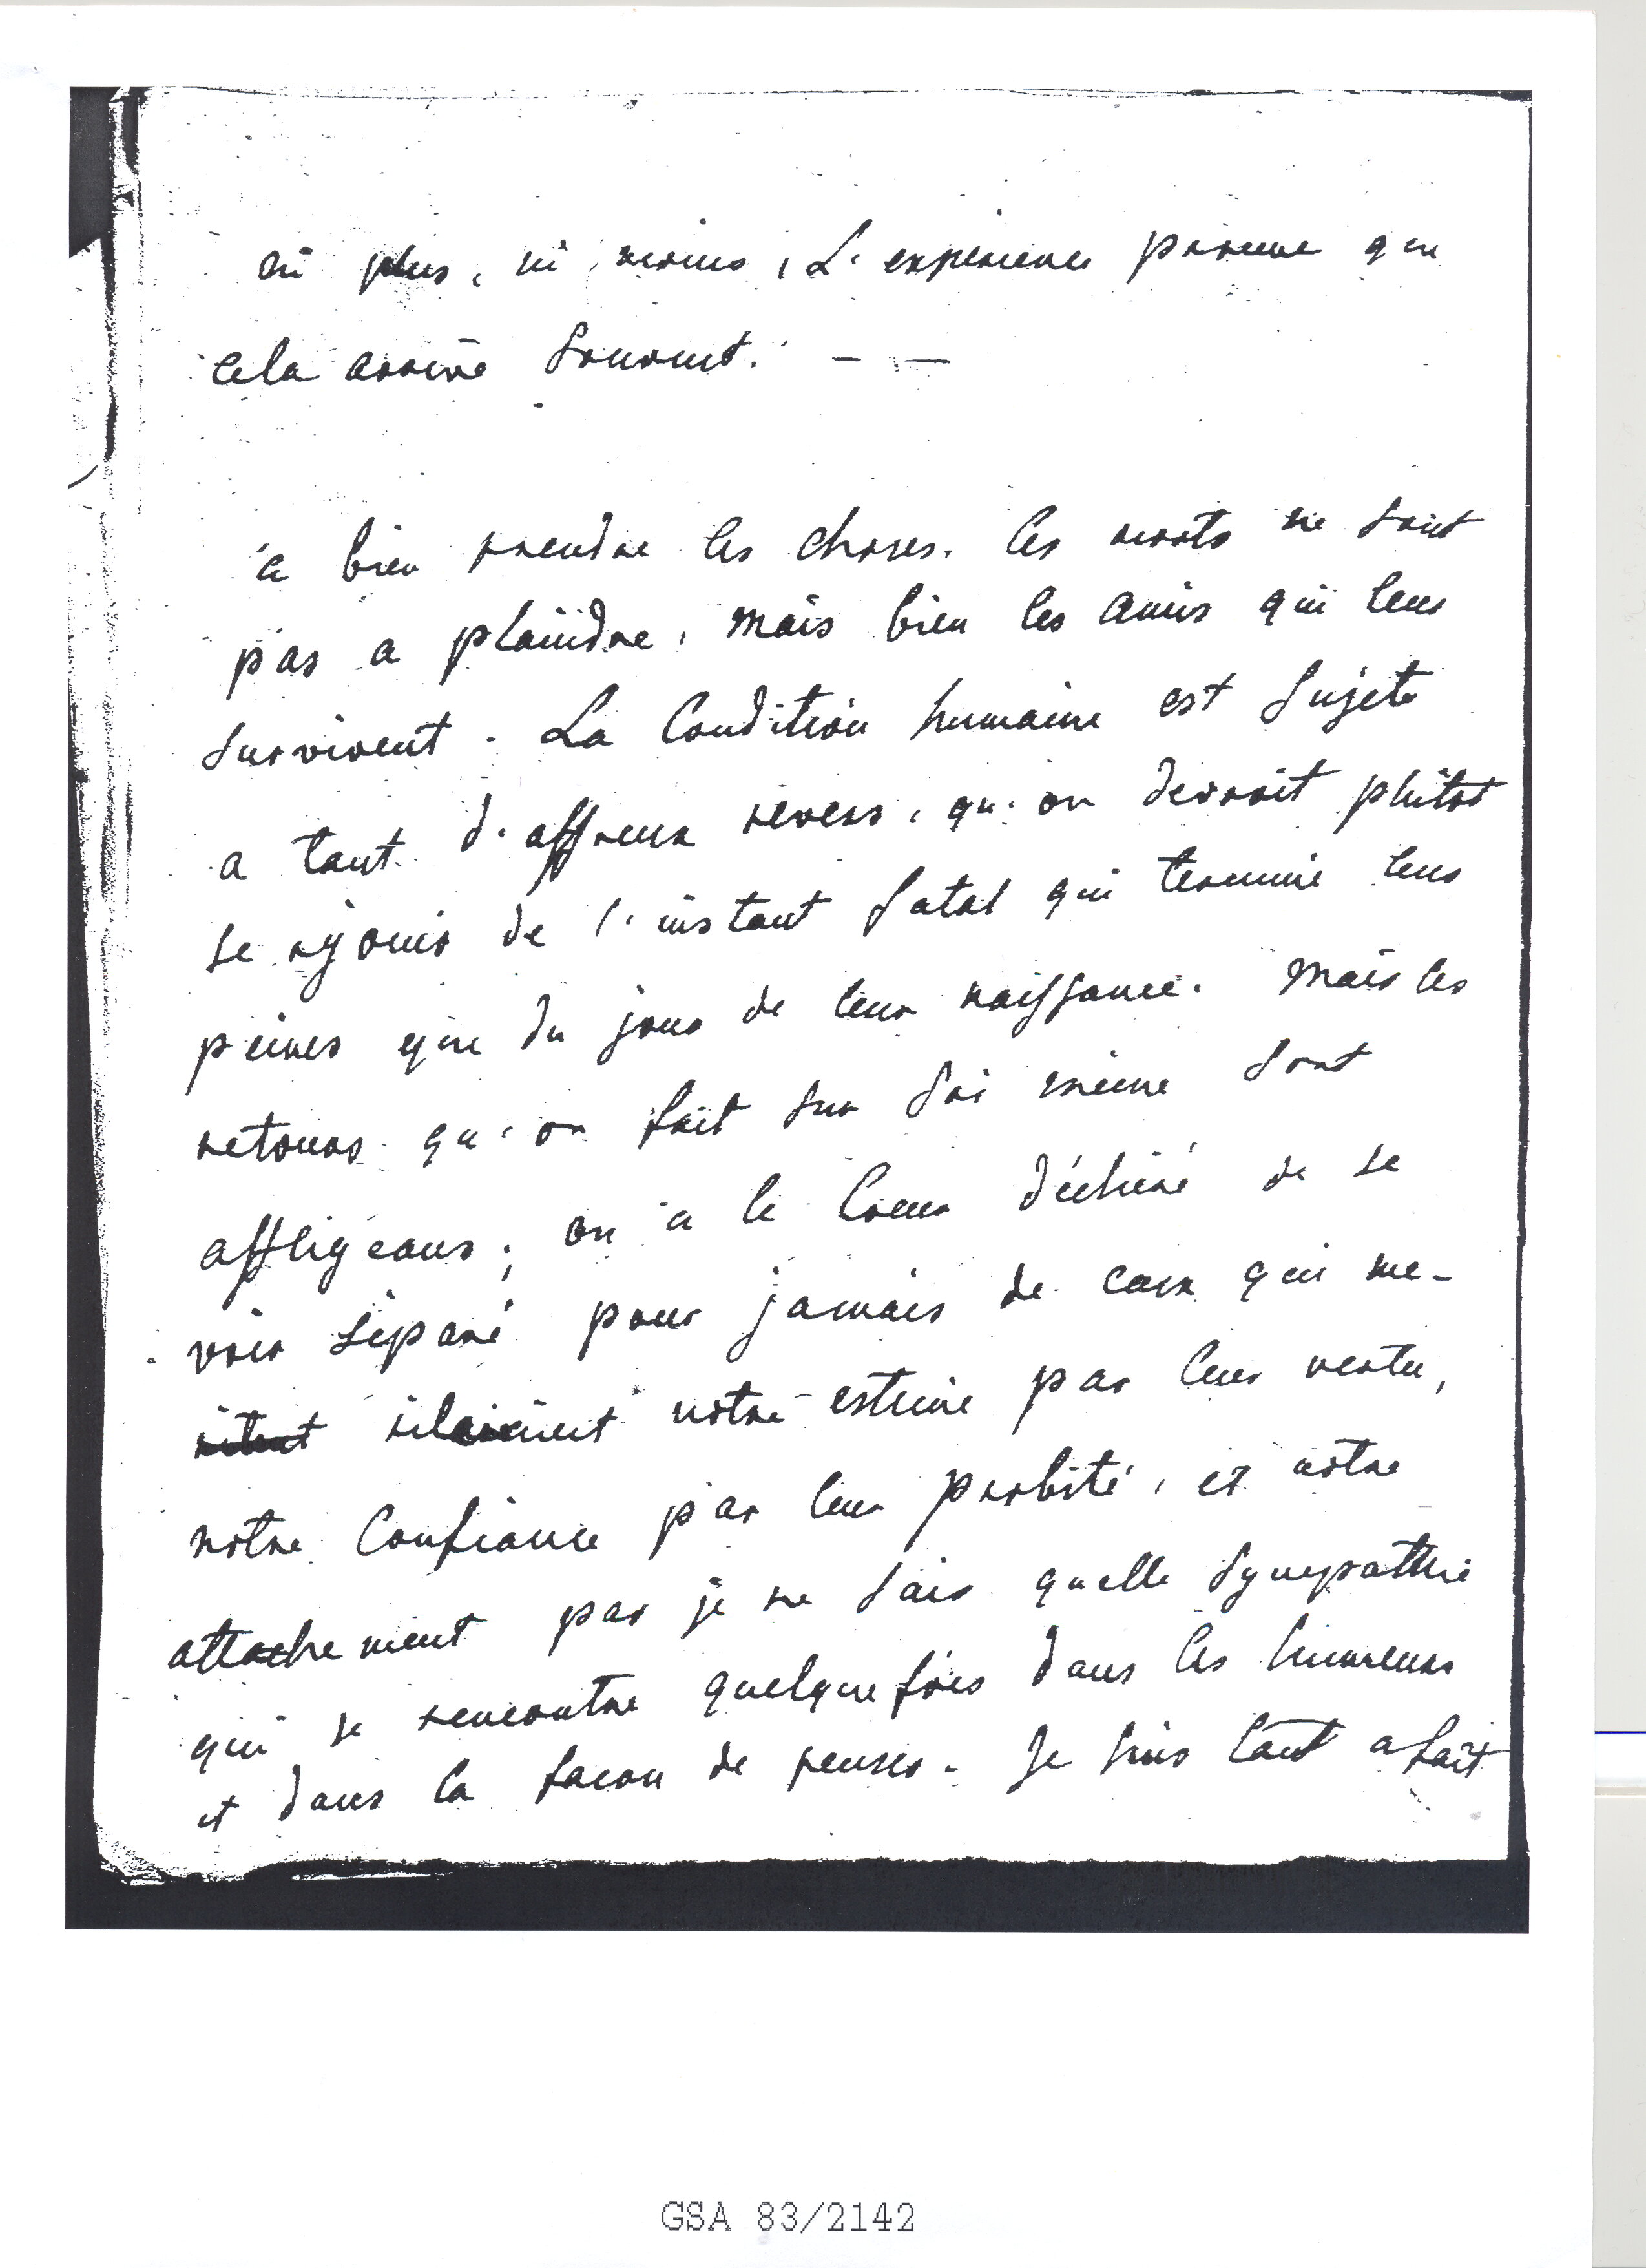 ni plus, ni moins, L'experience prouve que
cela arrive souvent. — —
à bien prendre les choses, les morts ne sont
pas a plaindre, mais bien les amis qui leur
survivent. La Condition humaine est sujete
a tant d'affreux revers, qu'on devroit plûtot
se rejouir de l'instant fatal qui termine leurs
peines que du jour de leur naissance. Mais les
retours qu'on fait sur soi même sont
affligeans; on a le Coeur déchiré de se
voir séparé pour jamais de ceux qui me-
ritent notre estime par leur vertu,
notre Confiance par leur probité, et notre
attachement par je ne sais quelle sympathie
qui se rencontre quelque fois dans les humeurs
et dans la facon de penser. Je suis tout a fait
GSA 83/2142